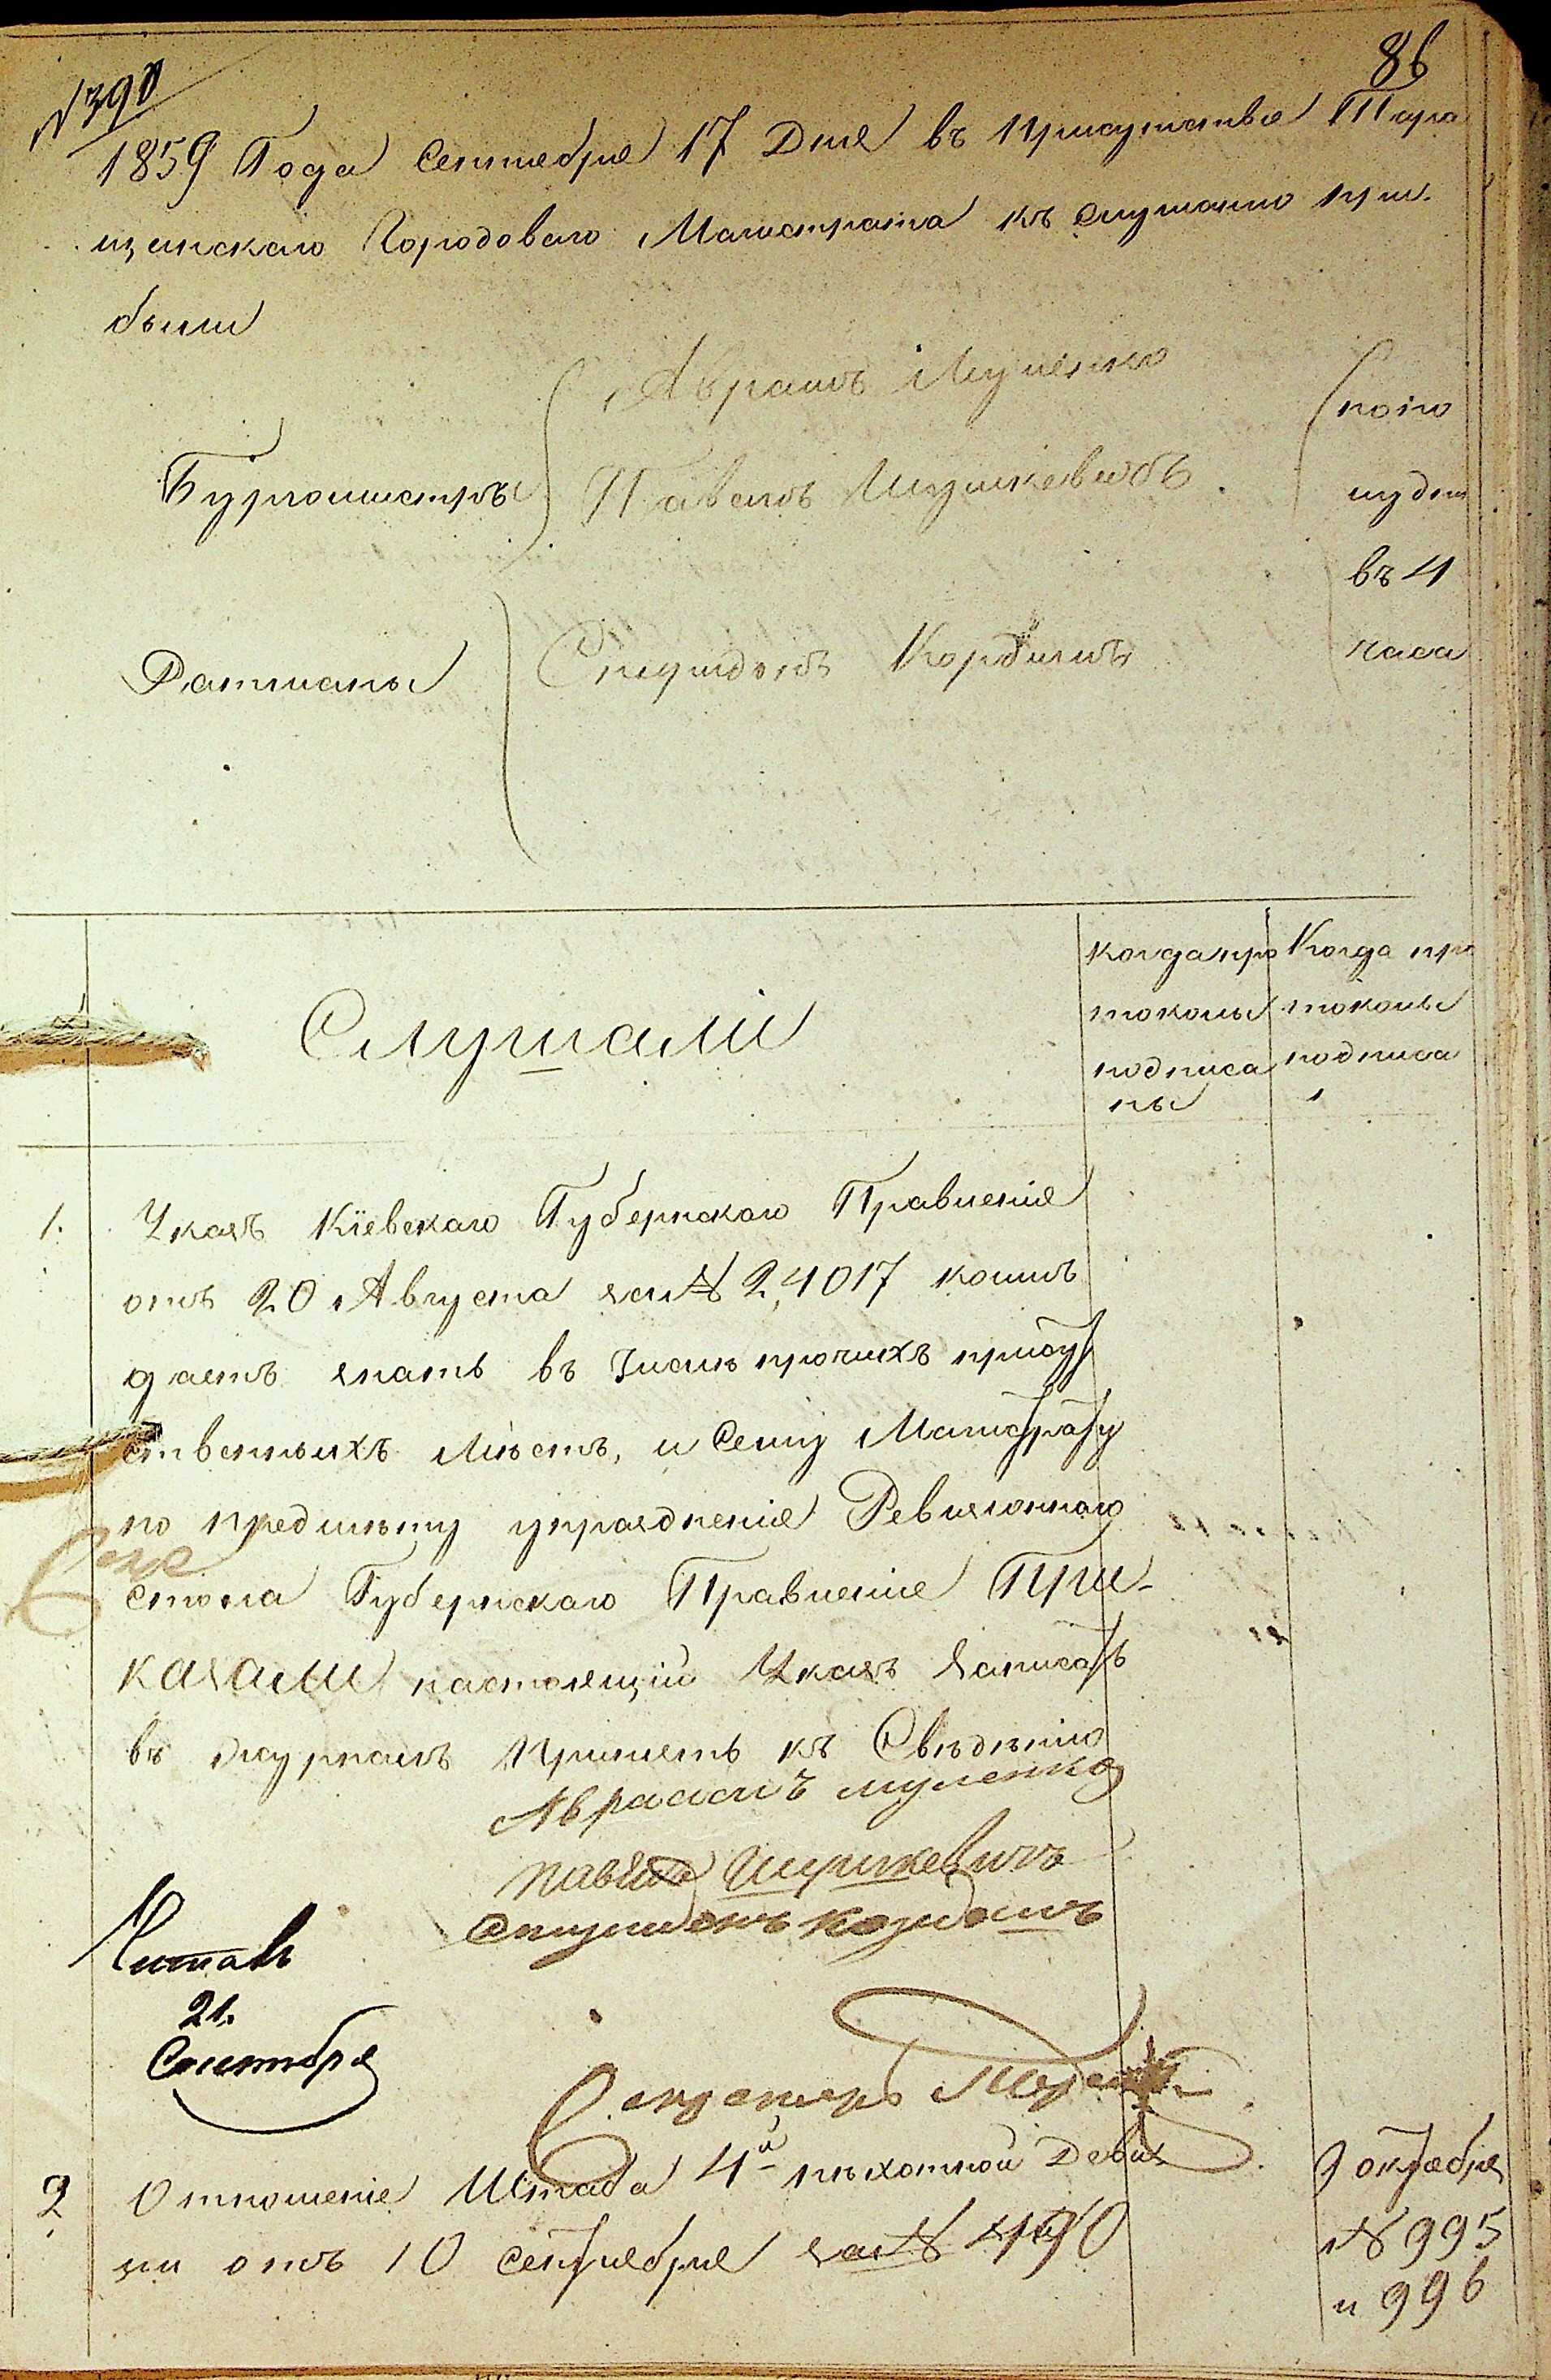 № 390
86
1859 Года Сентября 17 Дня въ присутствіе Тара
щанскаго Городоваго Магистрата къ слушанію при-
были
Бургомистры
Аврамъ Муленко
Павелъ Шушкевичъ
Ратманы
Спиридонъ
пополу
въ 4
часа
Слушали
когда про
токолы
подписа
ны
Когда про
токолы
подписа
1. Указъ Кіевскаго Губернскаго Правленія
отъ 20 Августа за № 24017 коимъ
даетъ знать въ числѣ прочихъ присут
ственныхъ мѣстъ, и сему Магистрату
по предмѣту упраздненія Ревизіоннаго
стола Губернскаго Правленія При-
казали настоящій Указъ Записать
въ журналъ принять къ Свѣдѣнію
Аврамъ Муленко
Павелъ Шушкевичъ
Спиридонъ
Читалъ
21.
Сентября
Секретарь
2. Отношеніе Штаба 4й пѣхотной Дивиз
іи отъ 10 Сентября за № 490
9 октября
№ 995
и 996